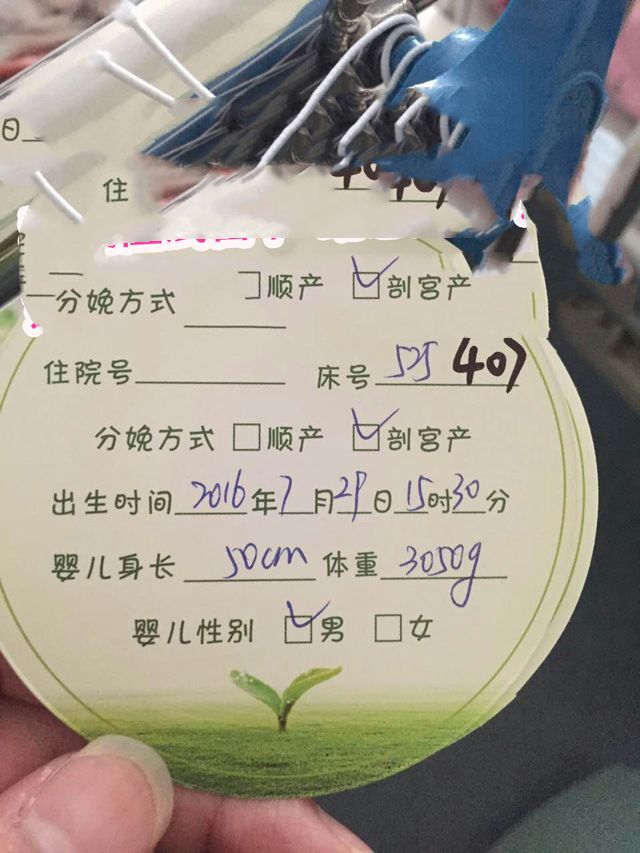 日
住
分娩方式 顺产 ☑剖宫产
住院号 床号 525 407
分娩方式 □顺产 ☑剖宫产
出生时间 2016年7月29日15时30分
婴儿身长 50cm 体重 3050g
婴儿性别 ☑男 □女